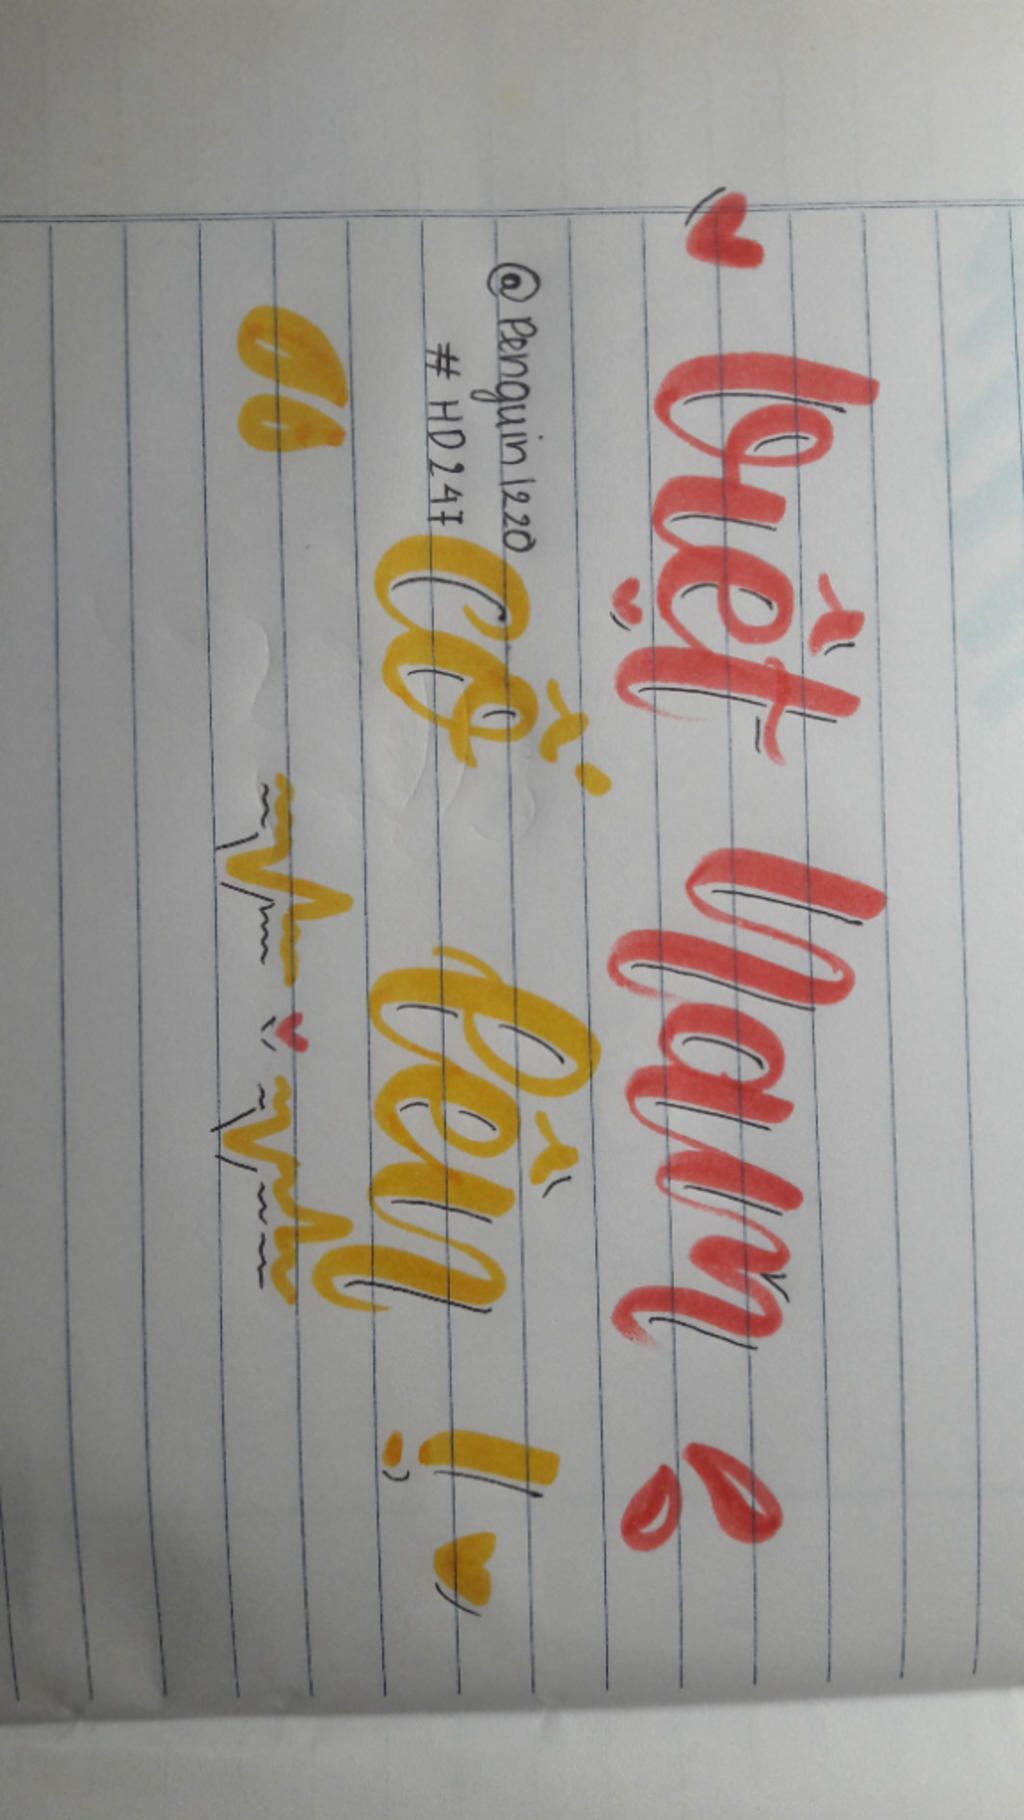 Việt Nam
@Penguin1220
#HD247
Cố Lên !